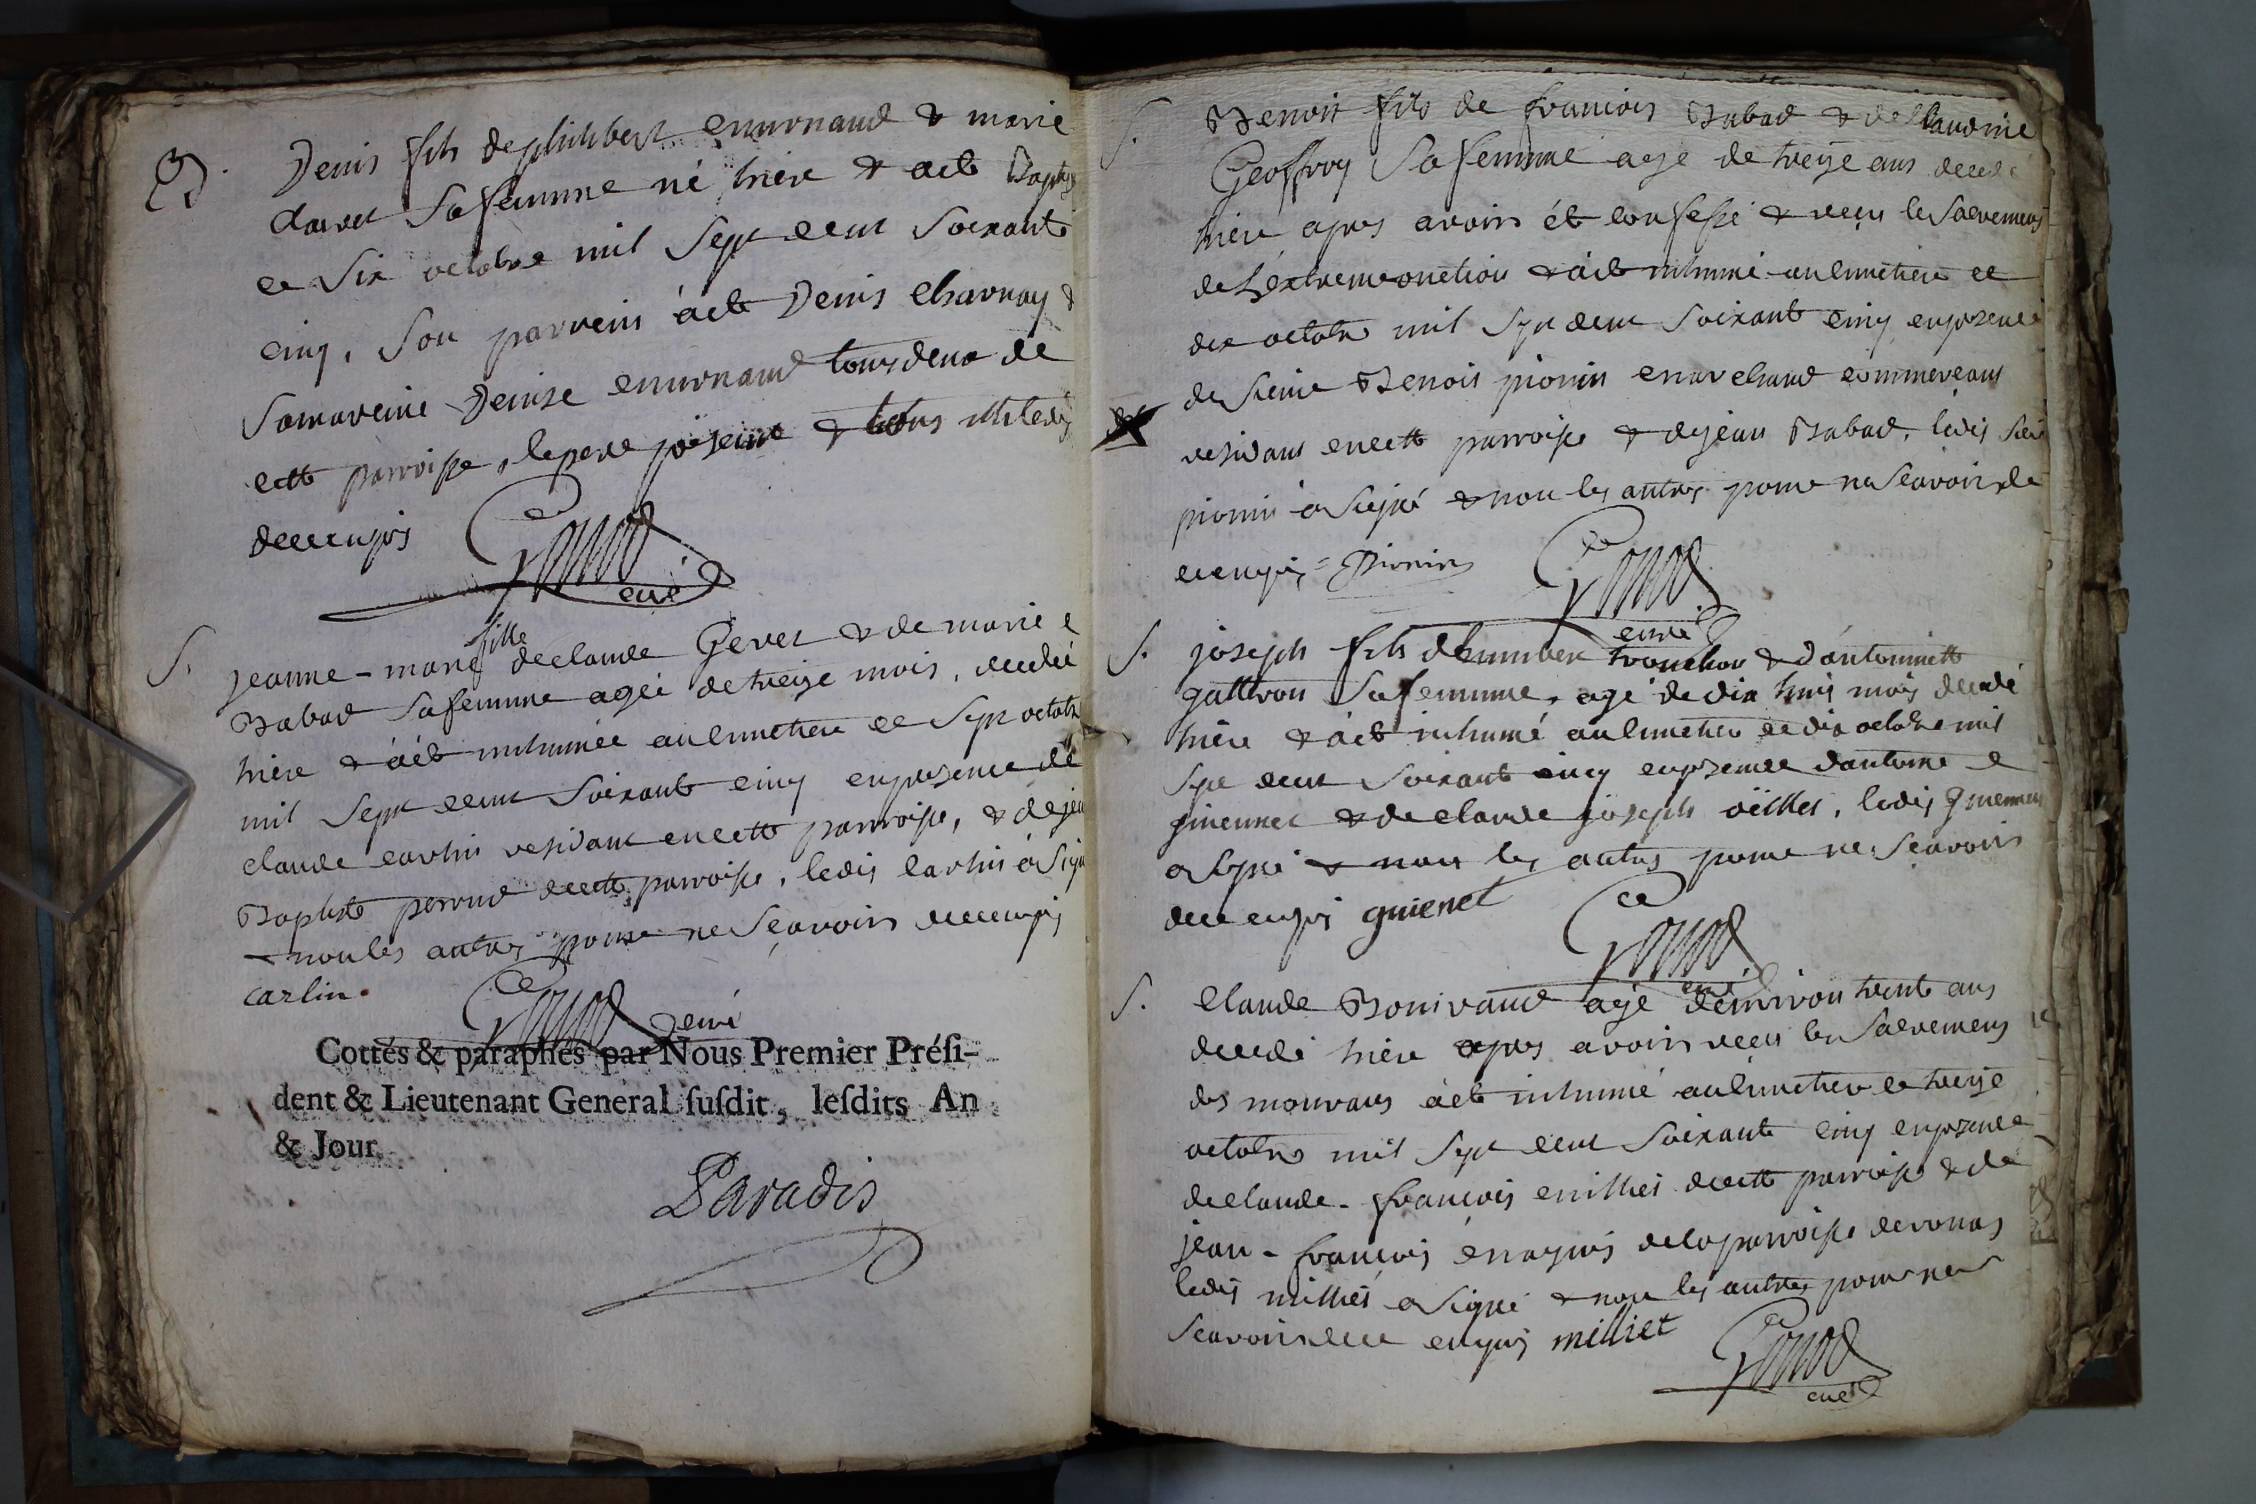 B.
Denis fils de philibert murnaud & marie
Savet sa femme né hier & a ete Baptisé
ce six octobre mil sept cent soixante
cinq, son parrein à ete Denis Charnay &
sa mareine Denise murnaud tous deux de
cette parroisse, le pere present & tous illiteres
de ce enquis
Gonod
curé
S.
fille
jeanne-marie de claude Gevet & de marie
Babad sa femme agée de treize mois, decedée
hière & a été inhumée au cimetiere ce sept octobre
mil sept cent soixante cinq en presence de
claude carlin residant en cette parroisse, & de jean
Baptiste perrud de cette parroisse, ledit Carlin a signé
& non les autres pour ne sçavoir de ce enquis
carlin.
Gonod curé
Cottés & paraphés par Nous Premier Préſi-
dent & Lieutenant General ſuſdit, leſdits An
& Jour.
Paradis
S.
Benoit fils de francois Babad & de Claudine
Geoffroy sa femme age de treize ans decedé
hière apres avoir été confessé & reçu le sacremens
de L'extreme onction & a été inhumé au cimetiere ce
dix octobre mil sept cent soixante cinq en presence
de sieur Benoit pionin marchand commercant
residant en cette parroisse & de jean Babad, ledit sieur
pionin a signé & non les autres pour ne sçavoir de
ce enquis = Pionin
Gonod
curé
S.
joseph fils d'humber tronchon & d'antoinette
gattron sa femme, agé de dix huit mois decedé
hière & a été inhumé au cimetiere ce dix octobre mil
sept cent soixante cinq en presence d'antoine
guiennet & de claude joseph oillet, ledit guiennet
a signé & non les autres pour ne sçavoir
de ce enquis guienet
Gonod
curé
S.
Claude Bonivand agé d'environ trente ans
decedé hière apres avoir reçu les sacremens
des mourans a été inhumé au cimetiere ce treize
octobre mil sept cent soixante cinq en presence
de claude-françois milliet de cette parroisse & de
jean-françois de la parroisse de
ledit milliet a signé & non les autres pour ne
sçavoir de ce enquis milliet
Gonod
curé